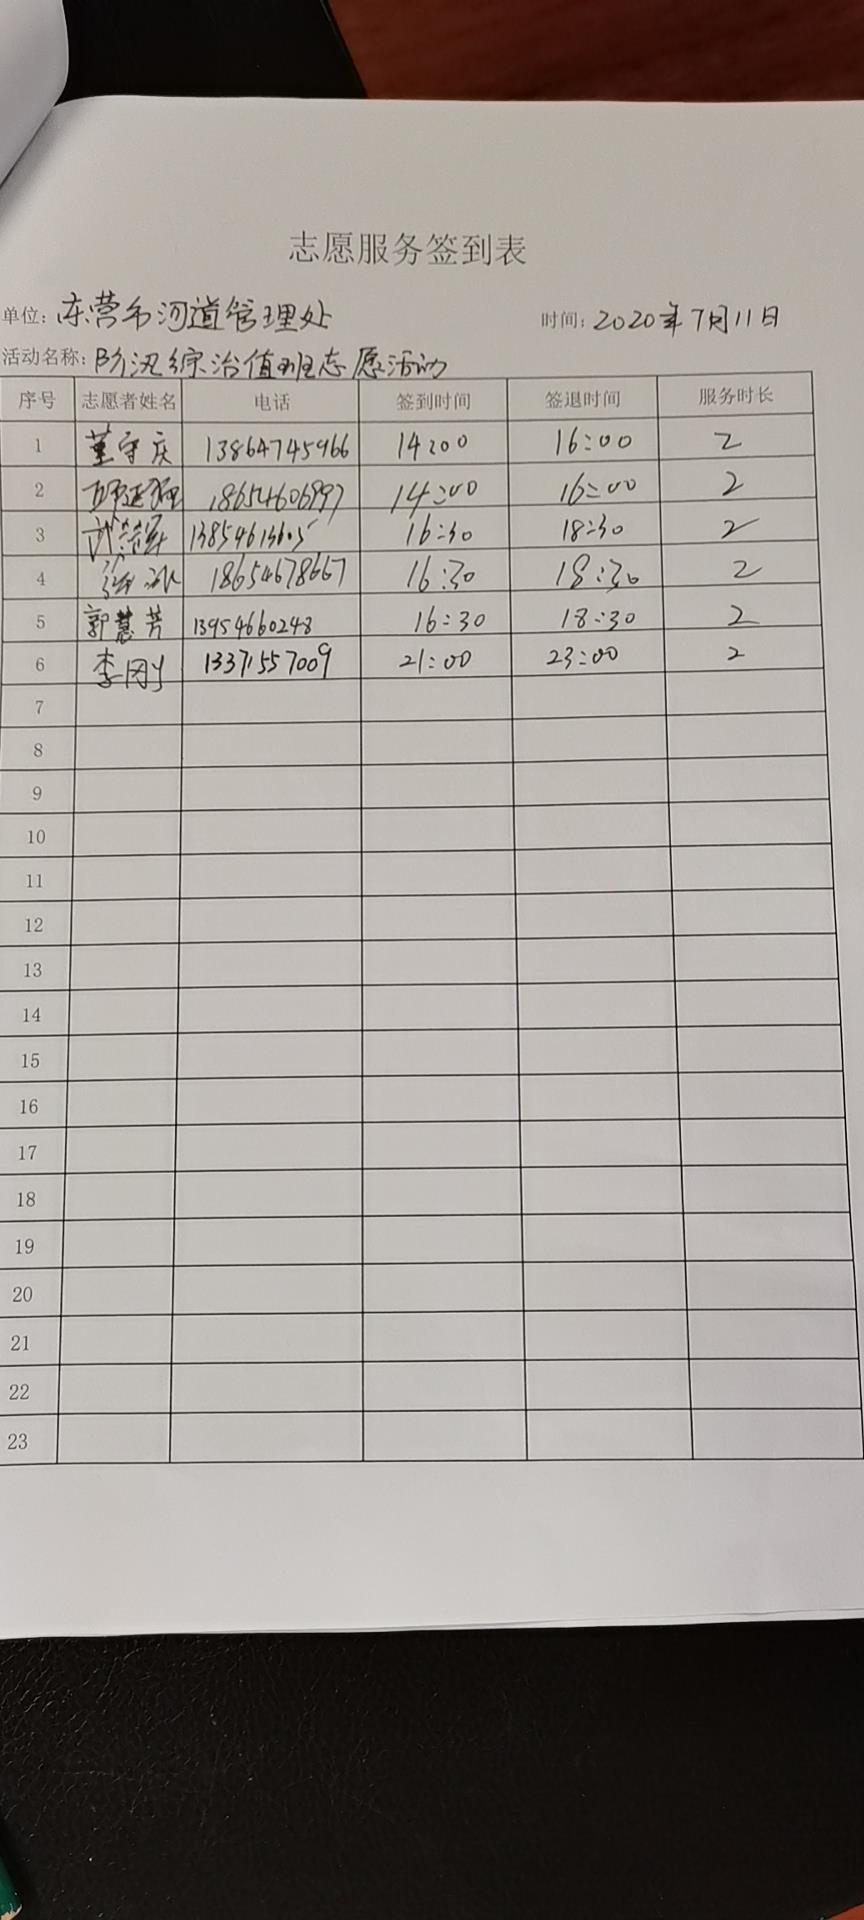 志愿服务签到表
单位: 东营市河道管理处 时间: 2020年7月11日
活动名称: 防汛综治值班志愿活动
序号 志愿者姓名 电话 签到时间 签退时间 服务时长
1 董守庆 13864745966 14:00 16:00 2
2 14:00 16:00 2
3 16:30 18:30 2
4 18654678667 16:30 18:30 2
5 郭慧芳 13954660248 16:30 18:30 2
6 李刚 13371557009 21:00 23:00 2
7
8
9
10
11
12
13
14
15
16
17
18
19
20
21
22
23